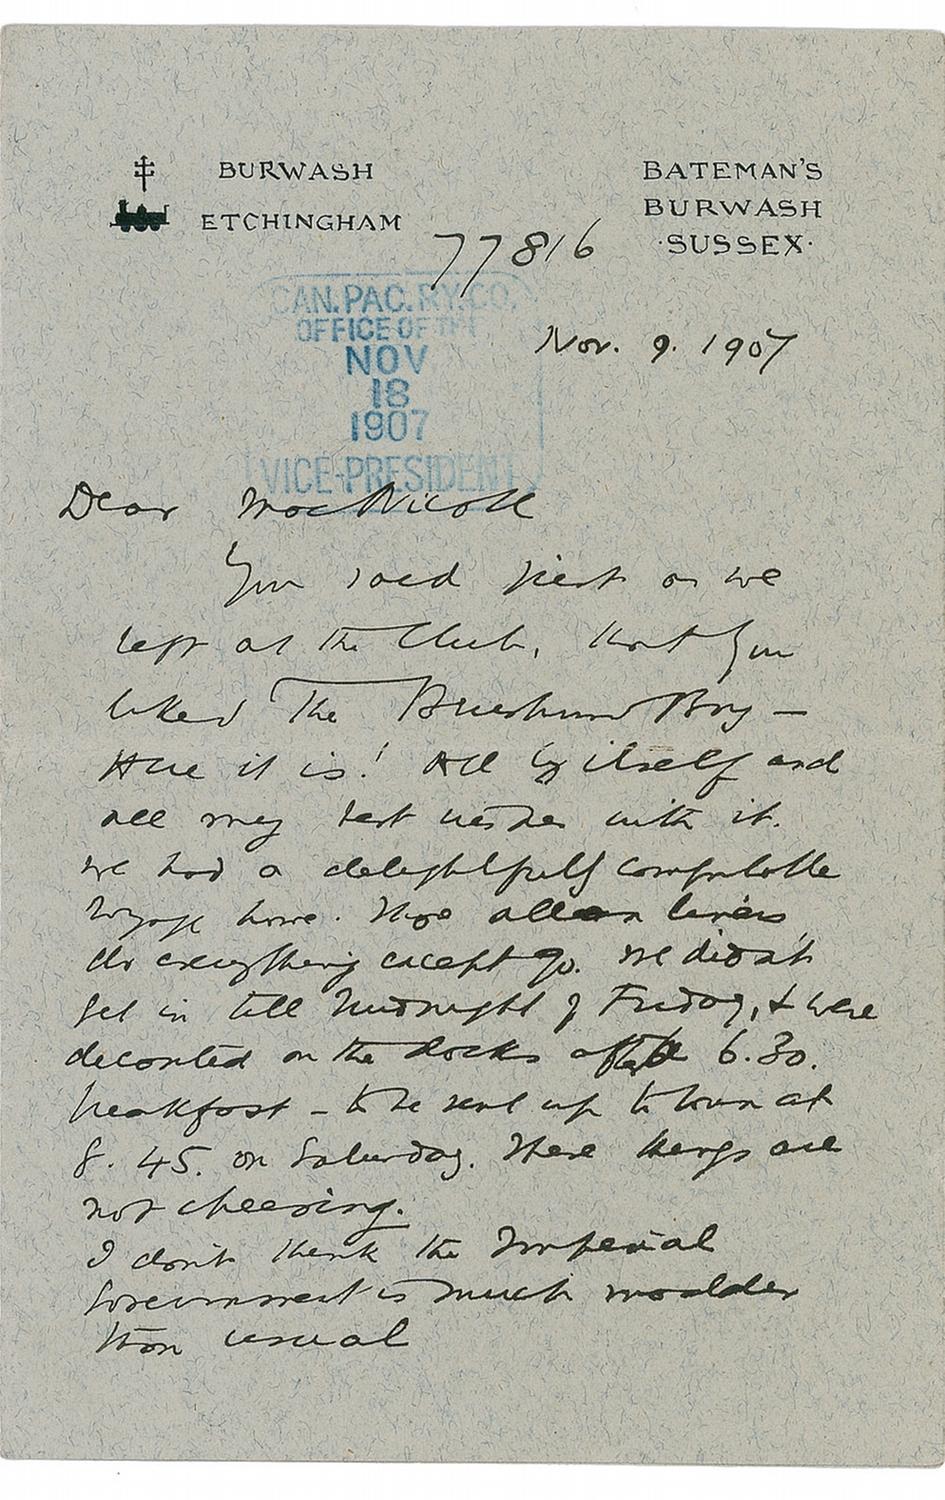 BURWASH
ETCHINGHAM
BATEMAN'S
BURWASH
·SUSSEX·
77816
CAN. PAC. RY. CO.
OFFICE OF THE
NOV
18
1907
VICE-PRESIDENT
Nov. 9. 1907
Dear MacNicoll
You said just as we
left at the Club, that you
liked The Brushwood Boy —
Here it is! All by itself and
all my best wishes with it.
We had a delightfully comfortable
voyage home. These allan liners
do everything except go. We didn't
get in till midnight of Friday, & were
decanted on the docks after 6.30.
breakfast – to be sent up to town at
8.45. on Saturday. These things are
not cheering.
I don't think the Imperial
Government is much madder
than usual